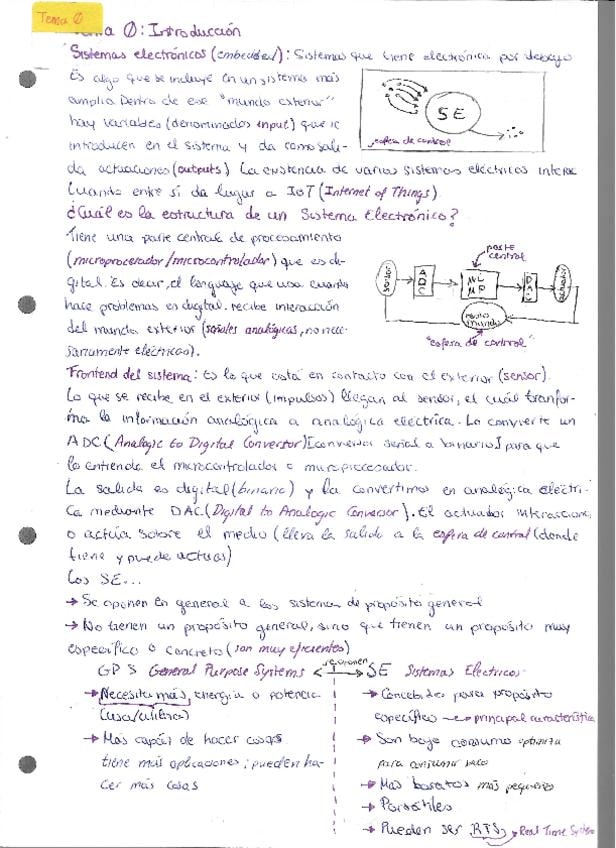 Tema 0
Tema 0: Introducción
Sistemas electrónicos (embedded): Sistemas que tiene electrónica por debajo
Es algo que se incluye en un sistema más
amplio. Dentro de ese "mundo exterior"
hay variables (denominadas input) que se
introducen en el sistema y da como sali-
da actuaciones (outputs) La existencia de varios sistemas eléctricos interac
tuando entre sí da lugar a IoT (Internet of Things).
SE
esfera de control
¿Cuál es la estructura de un Sistema Electrónico?
Tiene una parte central de procesamiento
(microprocesador/microcontrolador) que es di-
gital. Es decir, el lenguaje que usa cuando
hace problemas es digital. recibe interacción
del mundo exterior (señales analógicas, no nece-
sariamente eléctricas).
parte
central
sensor
ADC
MC
MP
DAC
actuador
mundo
"esfera de control"
Frontend del sistema: Es lo que está en contacto con el exterior (sensor).
Lo que se recibe en el exterior (impulsos) llegan al sensor, el cuál tranfor-
ma la información analógica a analógica eléctrica. Lo convierte un
ADC (Analogic to Digital Convertor) [conversor señal a binario] para que
lo entienda el microcontrolador o microprocesador.
La salida es digital (binario) y la convertimos en analógica eléctri-
ca mediante DAC (Digital to Analogic Conversor). El actuador interacciona
o actúa sobre el medio (lleva la salida a la esfera de control (donde
tiene y puede actuar)
Los SE...
→ Se oponen en general a los sistemas de propósito general
→ No tienen un propósito general, sino que tienen un propósito muy
específico o concreto (son muy eficientes)
GPS General Purpose Systems ← se oponen → SE Sistemas Electricos
→ Necesita más energía o potencia
(usa/utiliza)
→ Más capaz de hacer cosas
tiene más aplicaciones; pueden ha-
cer más cosas
→ Concebidos para propósito
específico → principal característica
→ Son bajo consumo optimiza
para consumir poco
→ Mas baratos más pequeños
→ Portátiles
→ Pueden ser RTS → Real Time System